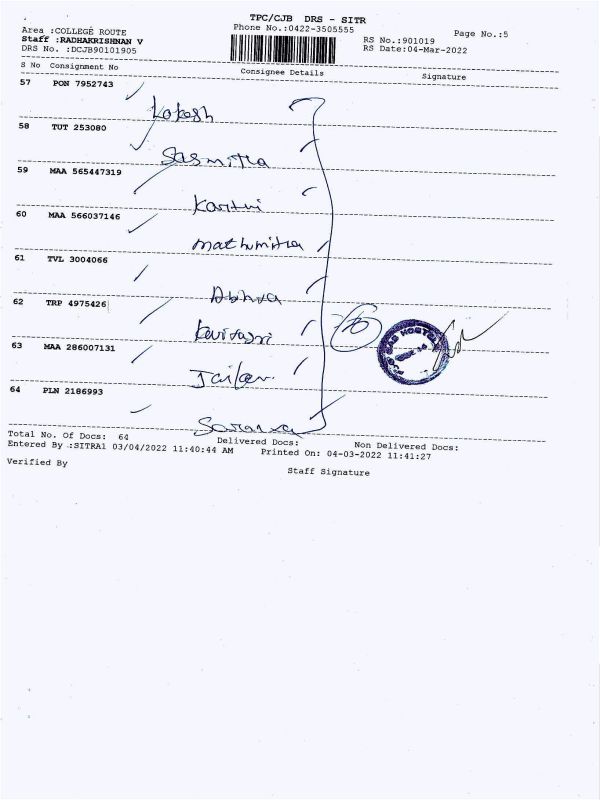 TPC/CJB DRS - SITR
Area :COLLEGE ROUTE
Phone No.:0422-3505555
Page No.:5
Staff :RADHAKRISHNAN V
RS No.:901019
DRS No. :DCJB90101905
RS Date:04-Mar-2022
S No Consignment No Consignee Details Signature
57 PON 7952743
Lokesh
58 TUT 253080
Sasmitha
59 MAA 565447319
60 MAA 566037146
mathumitha
61 TVL 3004066
62 TRP 4975426
63 MAA 286007131
64 PLN 2186993
Total No. Of Docs: 64 Delivered Docs: Non Delivered Docs:
Entered By :SITRA1 03/04/2022 11:40:44 AM Printed On: 04-03-2022 11:41:27
Verified By Staff Signature